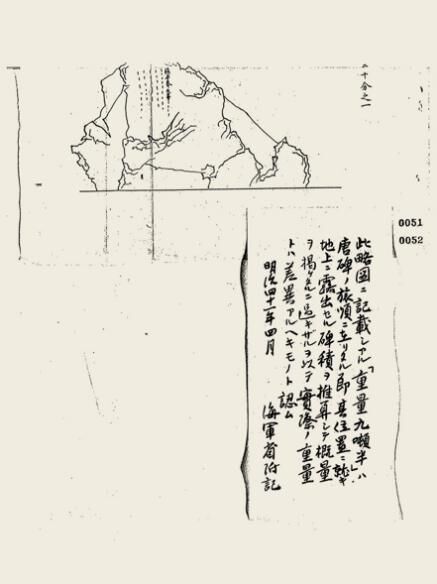 二十分之一
0051
0052
此略図ニ記載シアル「重量九噸半」ハ
唐碑ノ旅順ニ在リタル即其位置ニ就キ
地上ニ露出セル碑積ヲ推算シテ概量
ヲ掲ケタルニ過キザルヲ以テ實際ノ重量
トハ差異アルヘキモノト認ム
明治四十一年四月
海軍省附記